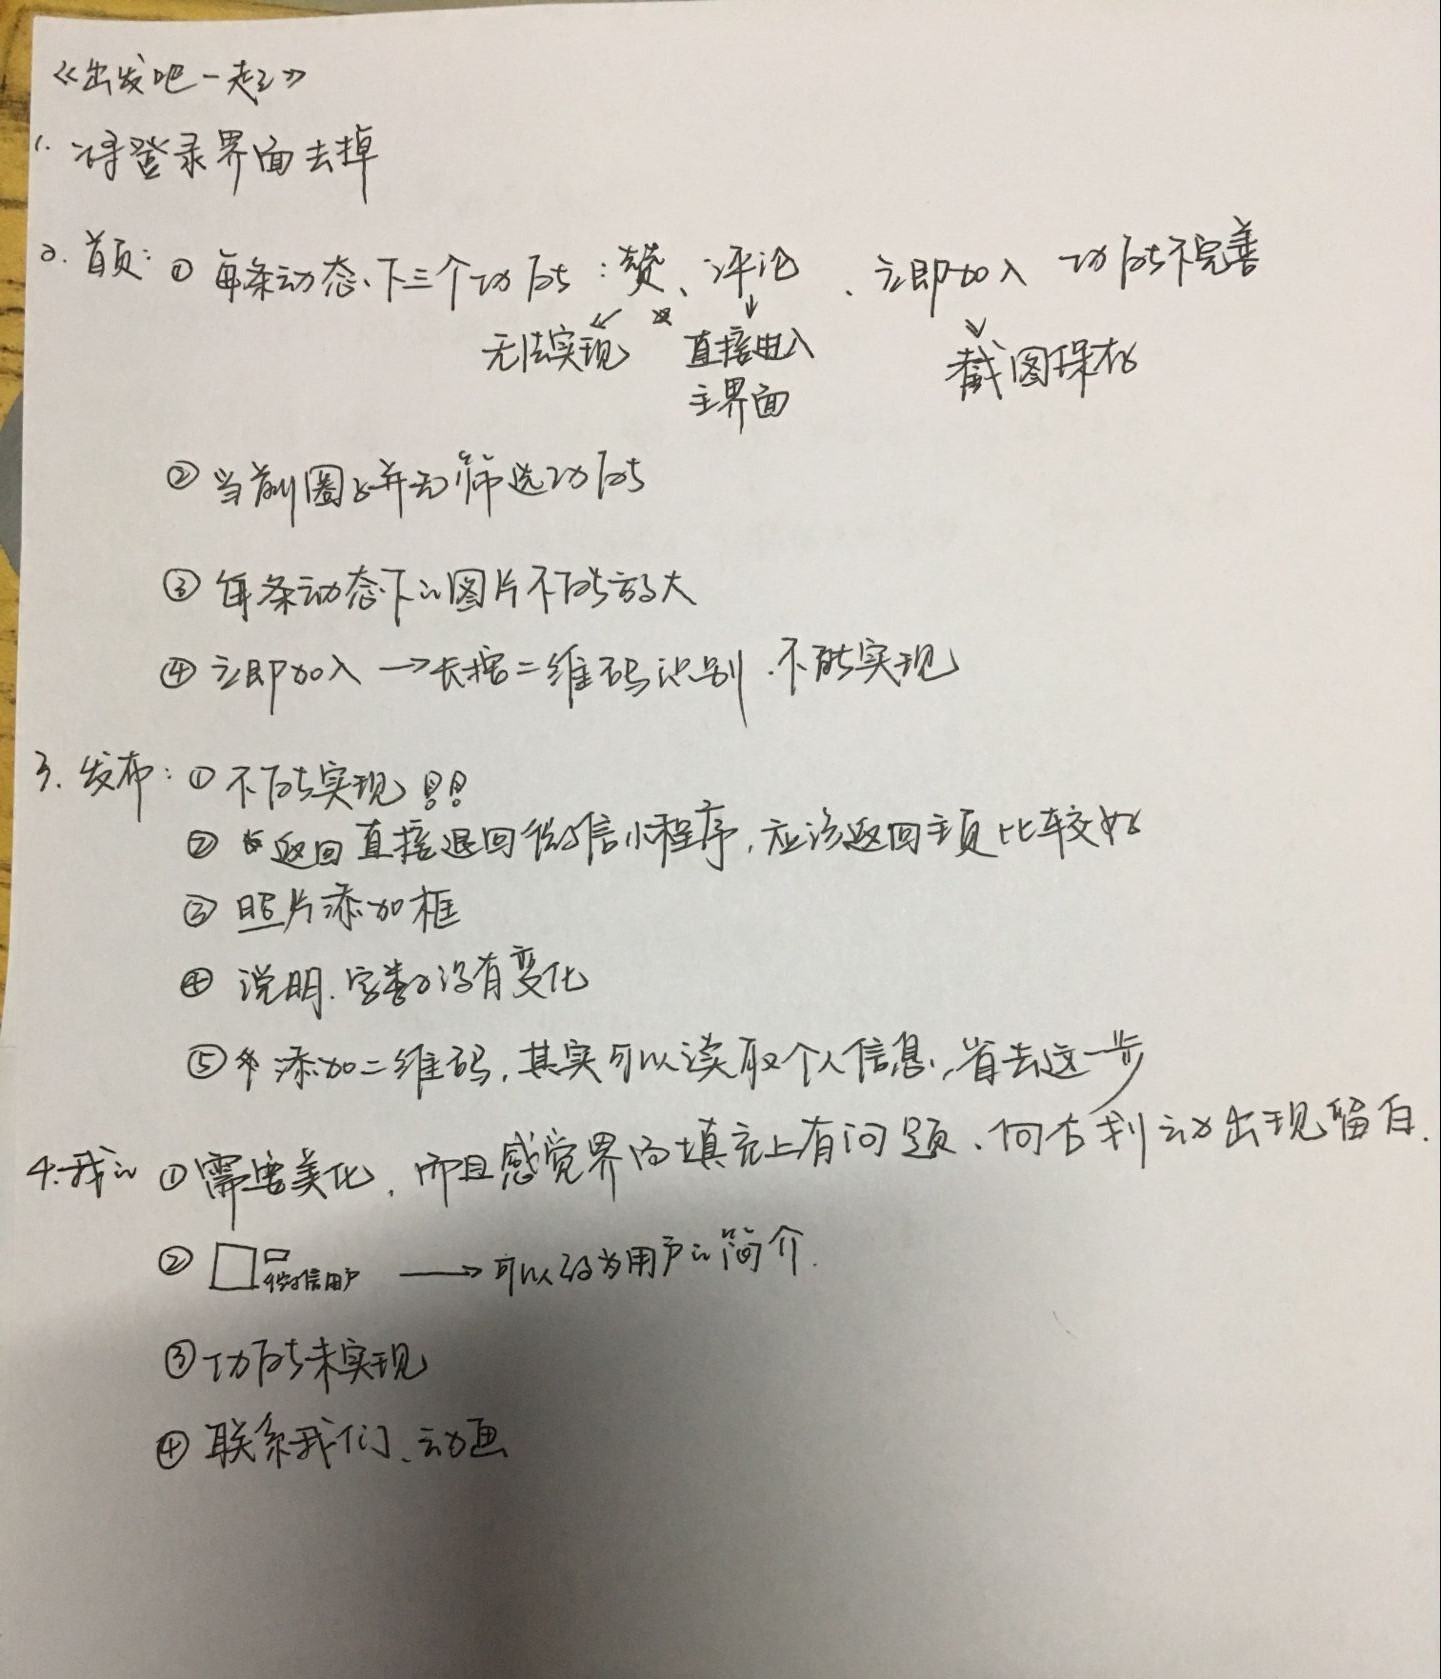 《出发吧一起》
1. 将登录界面去掉
2. 首页: ① 每条动态下三个功能:赞、评论、立即加入 功能不完善
无法实现 直接进入 截图保存
主界面
② 当前圈子并无筛选功能
③ 每条动态下的图片不能放大
④ 立即加入 → 长按二维码识别.不能实现
3. 发布: ① 不能实现!!
② 返回直接退回微信小程序,应该返回主页比较好
③ 照片添加框
④ 说明.字数没有变化
⑤ 添加二维码,其实可以读取个人信息,省去这一步
4.我的 ① 需要美化,而且感觉界面填充上有问题、向右划动出现留白.
② 微信用户 → 可以为用户的简介.
③ 功能未实现
④ 联系我们、动画